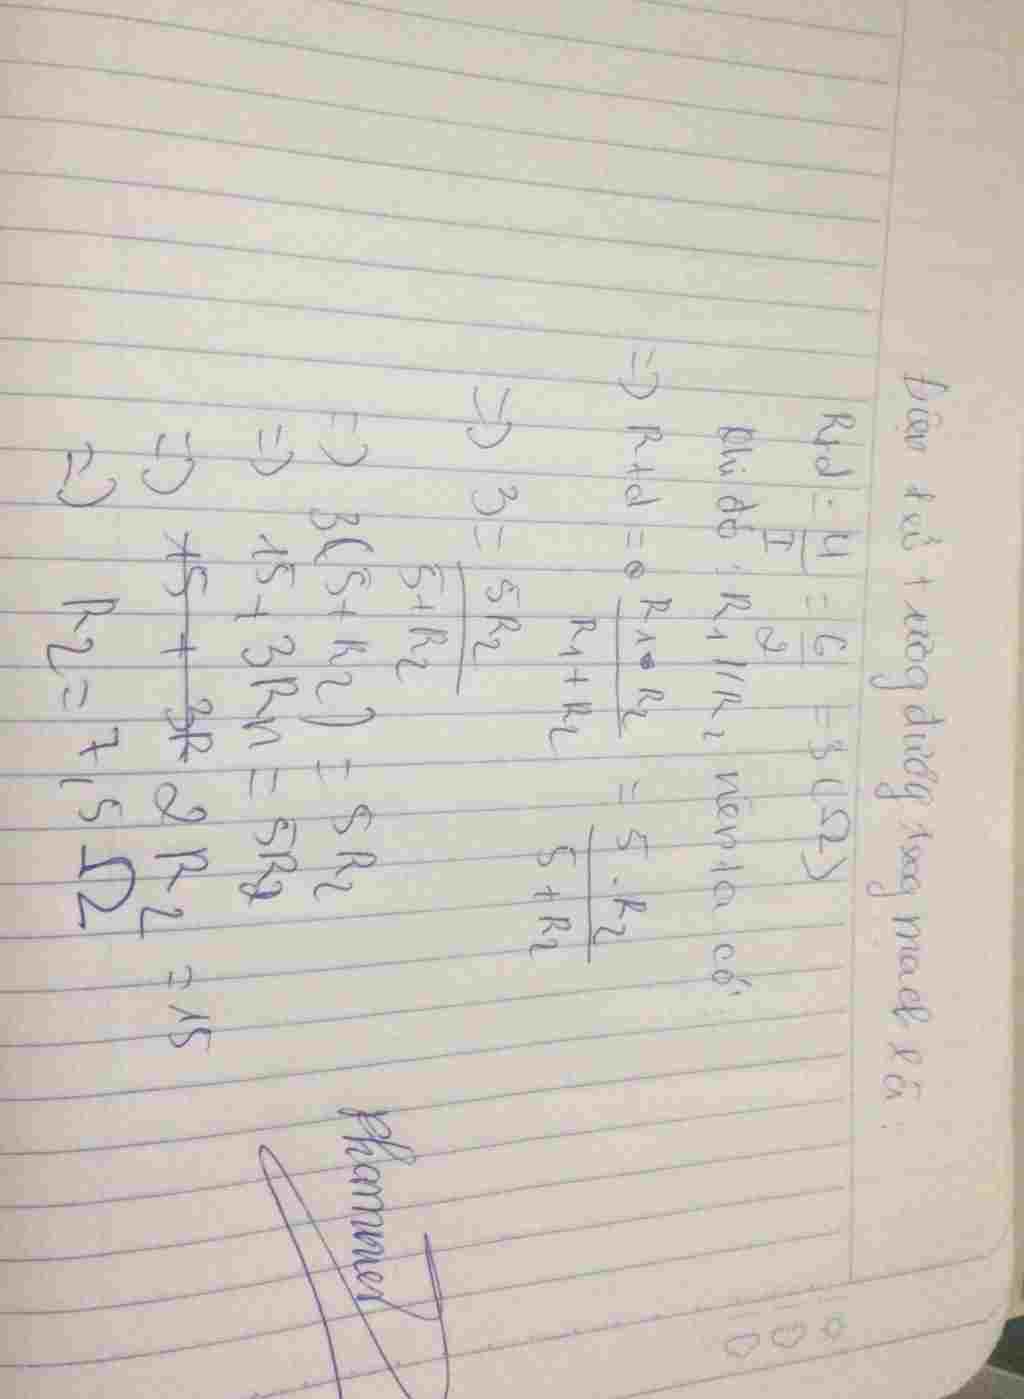 Điện trở tương đương trong mạch là:
Rtđ = U/I = 6/2 = 3 (Ω)
Khi đó: R1 // R2 nên ta có:
=> Rtđ = R1 • R2 / R1 + R2 = 5 . R2 / 5 + R2
=> 3 = 5R2 / 5 + R2
=> 3(5 + R2) = 5R2
=> 15 + 3Rn = 5R2
=> 2R2 = 15
=> R2 = 7,5 Ω